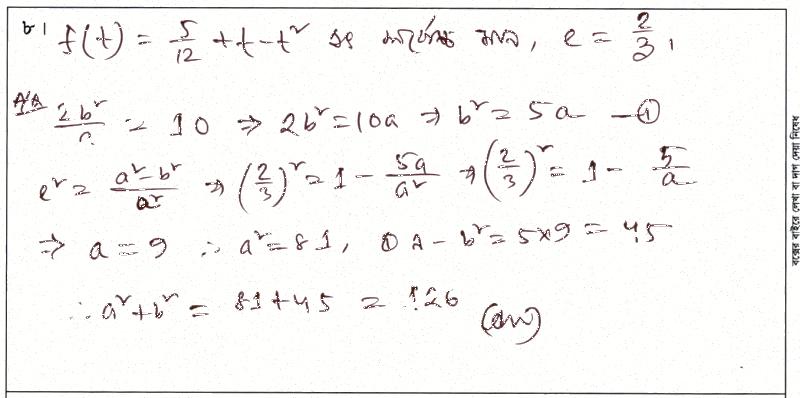 ৮। f(t) = 5/12 + t - t² এর সর্বোচ্চ মান, e = 2/3,
A/A 2b²/a = 10 ⇒ 2b² = 10a ⇒ b² = 5a — ①
e² = (a² - b²)/a² ⇒ (2/3)² = 1 - 5a/a² ⇒ (2/3)² = 1 - 5/a
⇒ a = 9 ∴ a² = 81, ① A - b² = 5×9 = 45
∴ a² + b² = 81 + 45 = 126 (Ans)
বক্সের বাইরে লেখা বা দাগ দেয়া নিষেধ